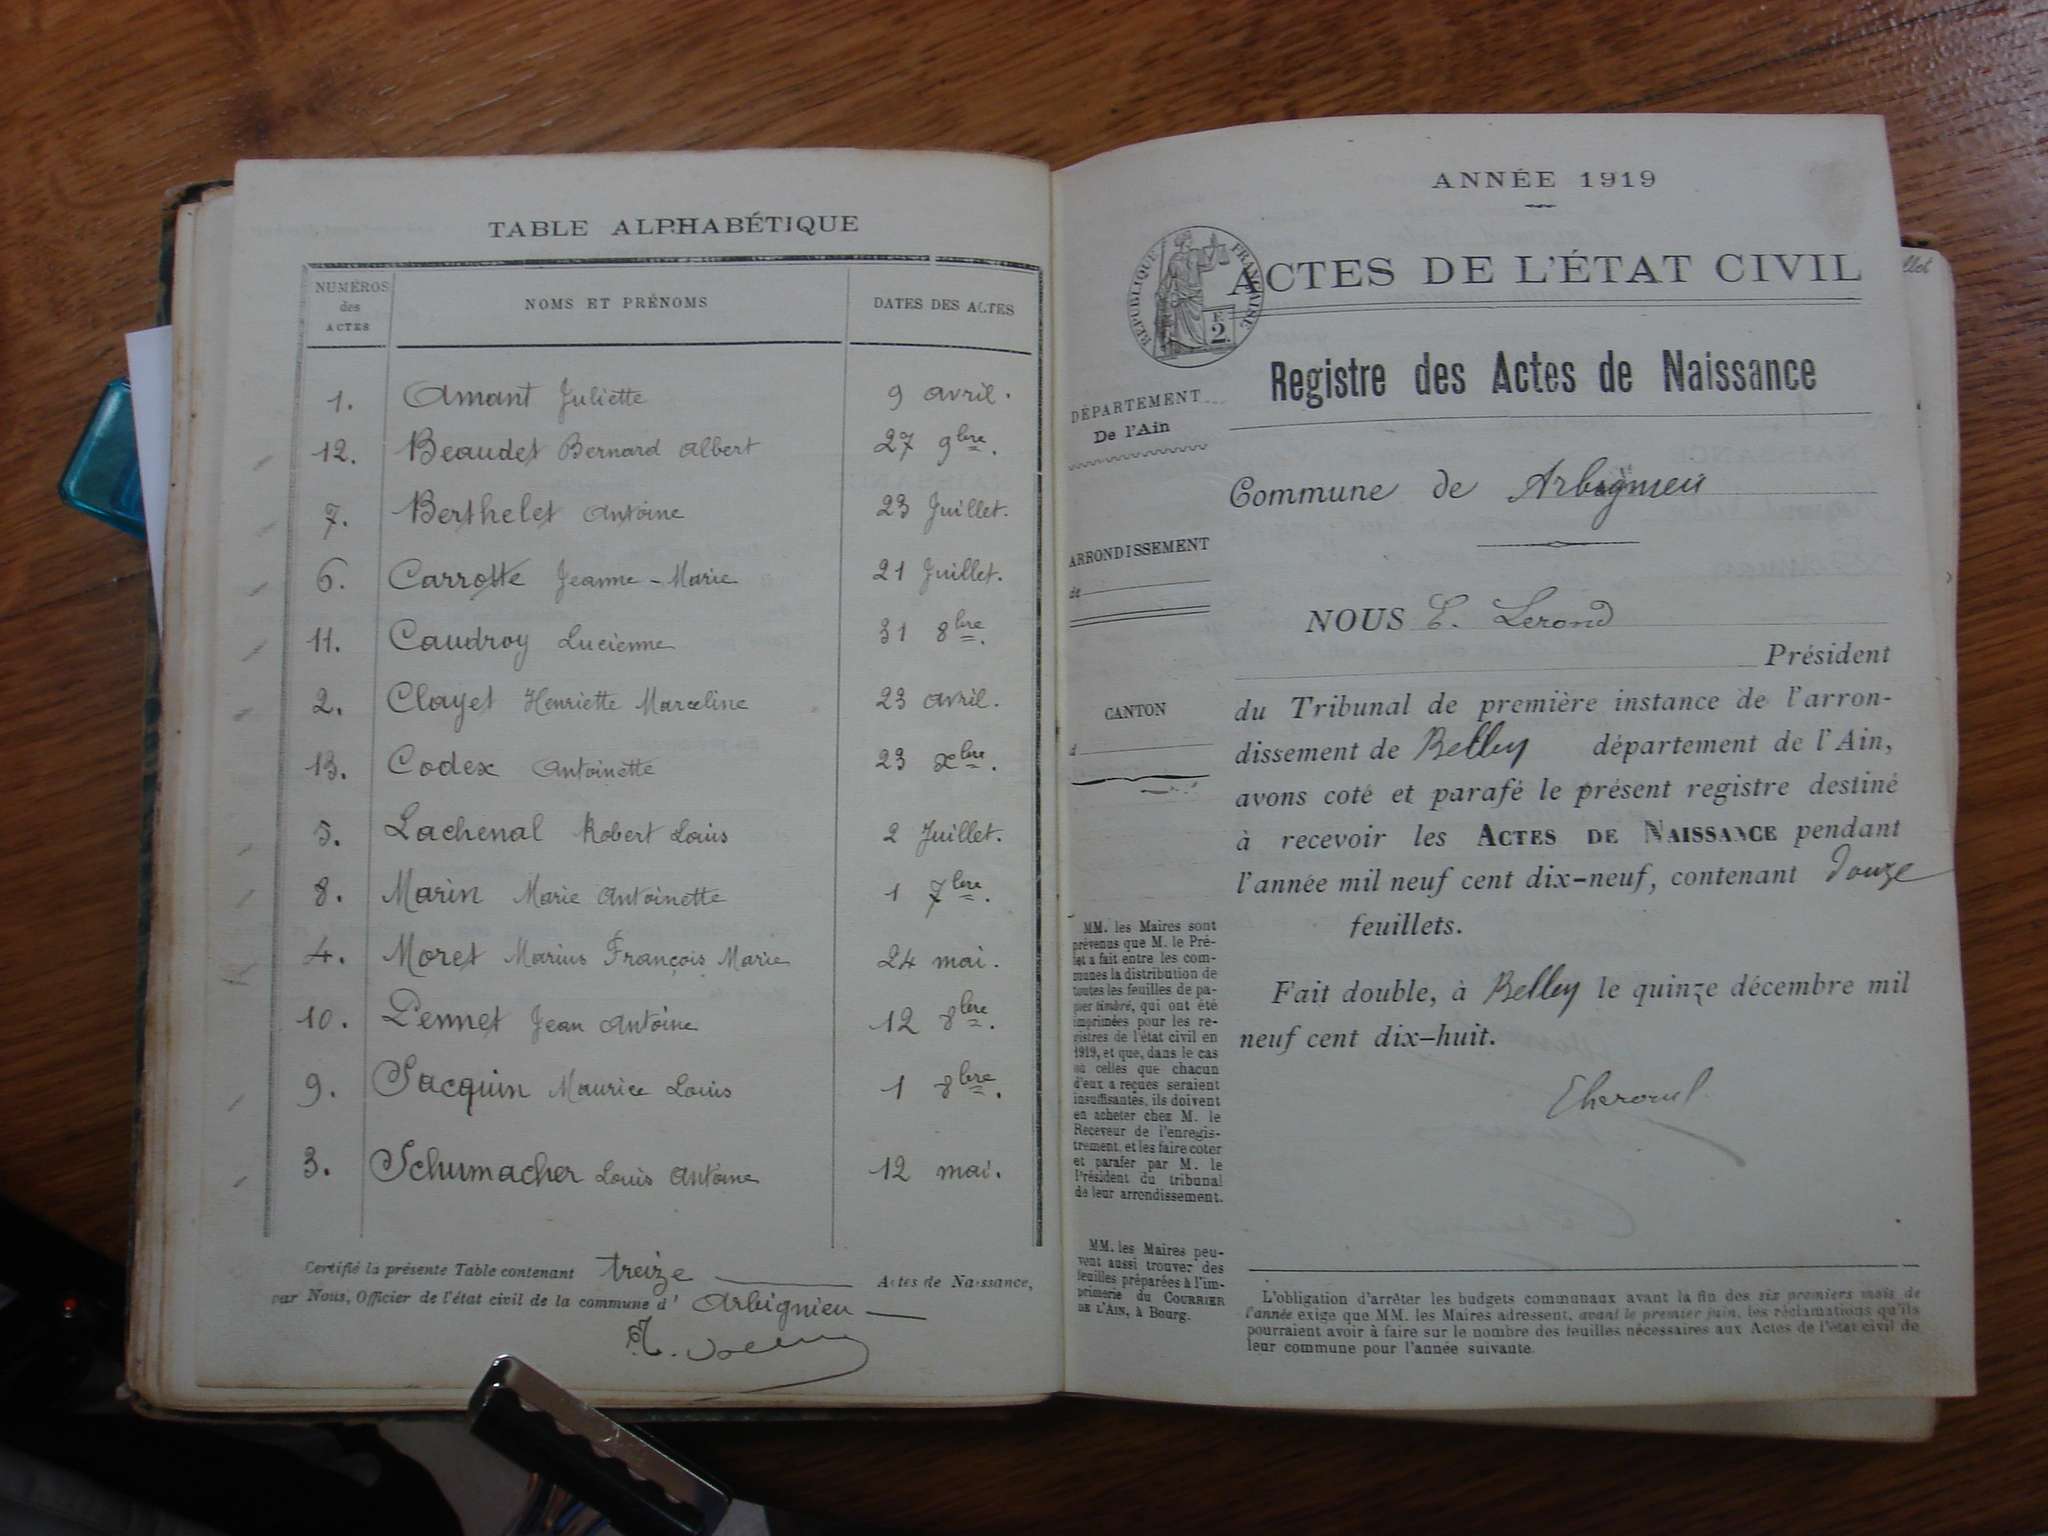 TABLE ALPHABÉTIQUE
NUMÉROS des ACTES NOMS ET PRÉNOMS DATES DES ACTES
1. Amant Juliette 9 avril.
12. Beaudet Bernard Albert 27 9bre.
7. Berthelet Antoine 23 Juillet.
6. Carrotte Jeanne-Marie 21 Juillet.
11. Caudroy Lucienne 31 8bre.
2. Clayet Henriette Marceline 23 avril.
13. Codex Antoinette 23 xbre.
5. Lachenal Robert Louis 2 Juillet.
8. Marin Marie Antoinette 1 7bre.
4. Moret Marius François Marie 24 mai.
10. Pennet Jean Antoine 12 8bre.
9. Sacquin Maurice Louis 1 8bre.
3. Schumacher Louis Antoine 12 mai.
Certifié la présente Table contenant treize Actes de Naissance,
par Nous, Officier de l'état civil de la commune d' Arbignieu
ANNÉE 1919
RÉPUBLIQUE FRANÇAISE
F. 2
ACTES DE L'ÉTAT CIVIL
Registre des Actes de Naissance
DÉPARTEMENT
De l'Ain
Commune de Arbignieu
ARRONDISSEMENT
de
NOUS E. Lerond
Président
CANTON
d
du Tribunal de première instance de l'arron-
dissement de Belley département de l'Ain,
avons coté et parafé le présent registre destiné
à recevoir les ACTES DE NAISSANCE pendant
l'année mil neuf cent dix-neuf, contenant douze
feuillets.
Fait double, à Belley le quinze décembre mil
neuf cent dix-huit.
MM. les Maires sont
prévenus que M. le Pré-
fet a fait entre les com-
munes la distribution de
toutes les feuilles de pa-
pier timbré, qui ont été
imprimées pour les re-
gistres de l'état civil en
1919, et que, dans le cas
où celles que chacun
d'eux a reçues seraient
insuffisantes, ils doivent
en acheter chez M. le
Receveur de l'enregis-
trement, et les faire coter
et parafer par M. le
Président du tribunal
de leur arrondissement.
MM. les Maires peu-
vent aussi trouver des
feuilles préparées à l'im-
primerie du COURRIER
DE L'AIN, à Bourg.
L'obligation d'arrêter les budgets communaux avant la fin des six premiers mois de
l'année exige que MM. les Maires adressent, avant le premier juin, les réclamations qu'ils
pourraient avoir à faire sur le nombre des feuilles nécessaires aux Actes de l'état civil de
leur commune pour l'année suivante.